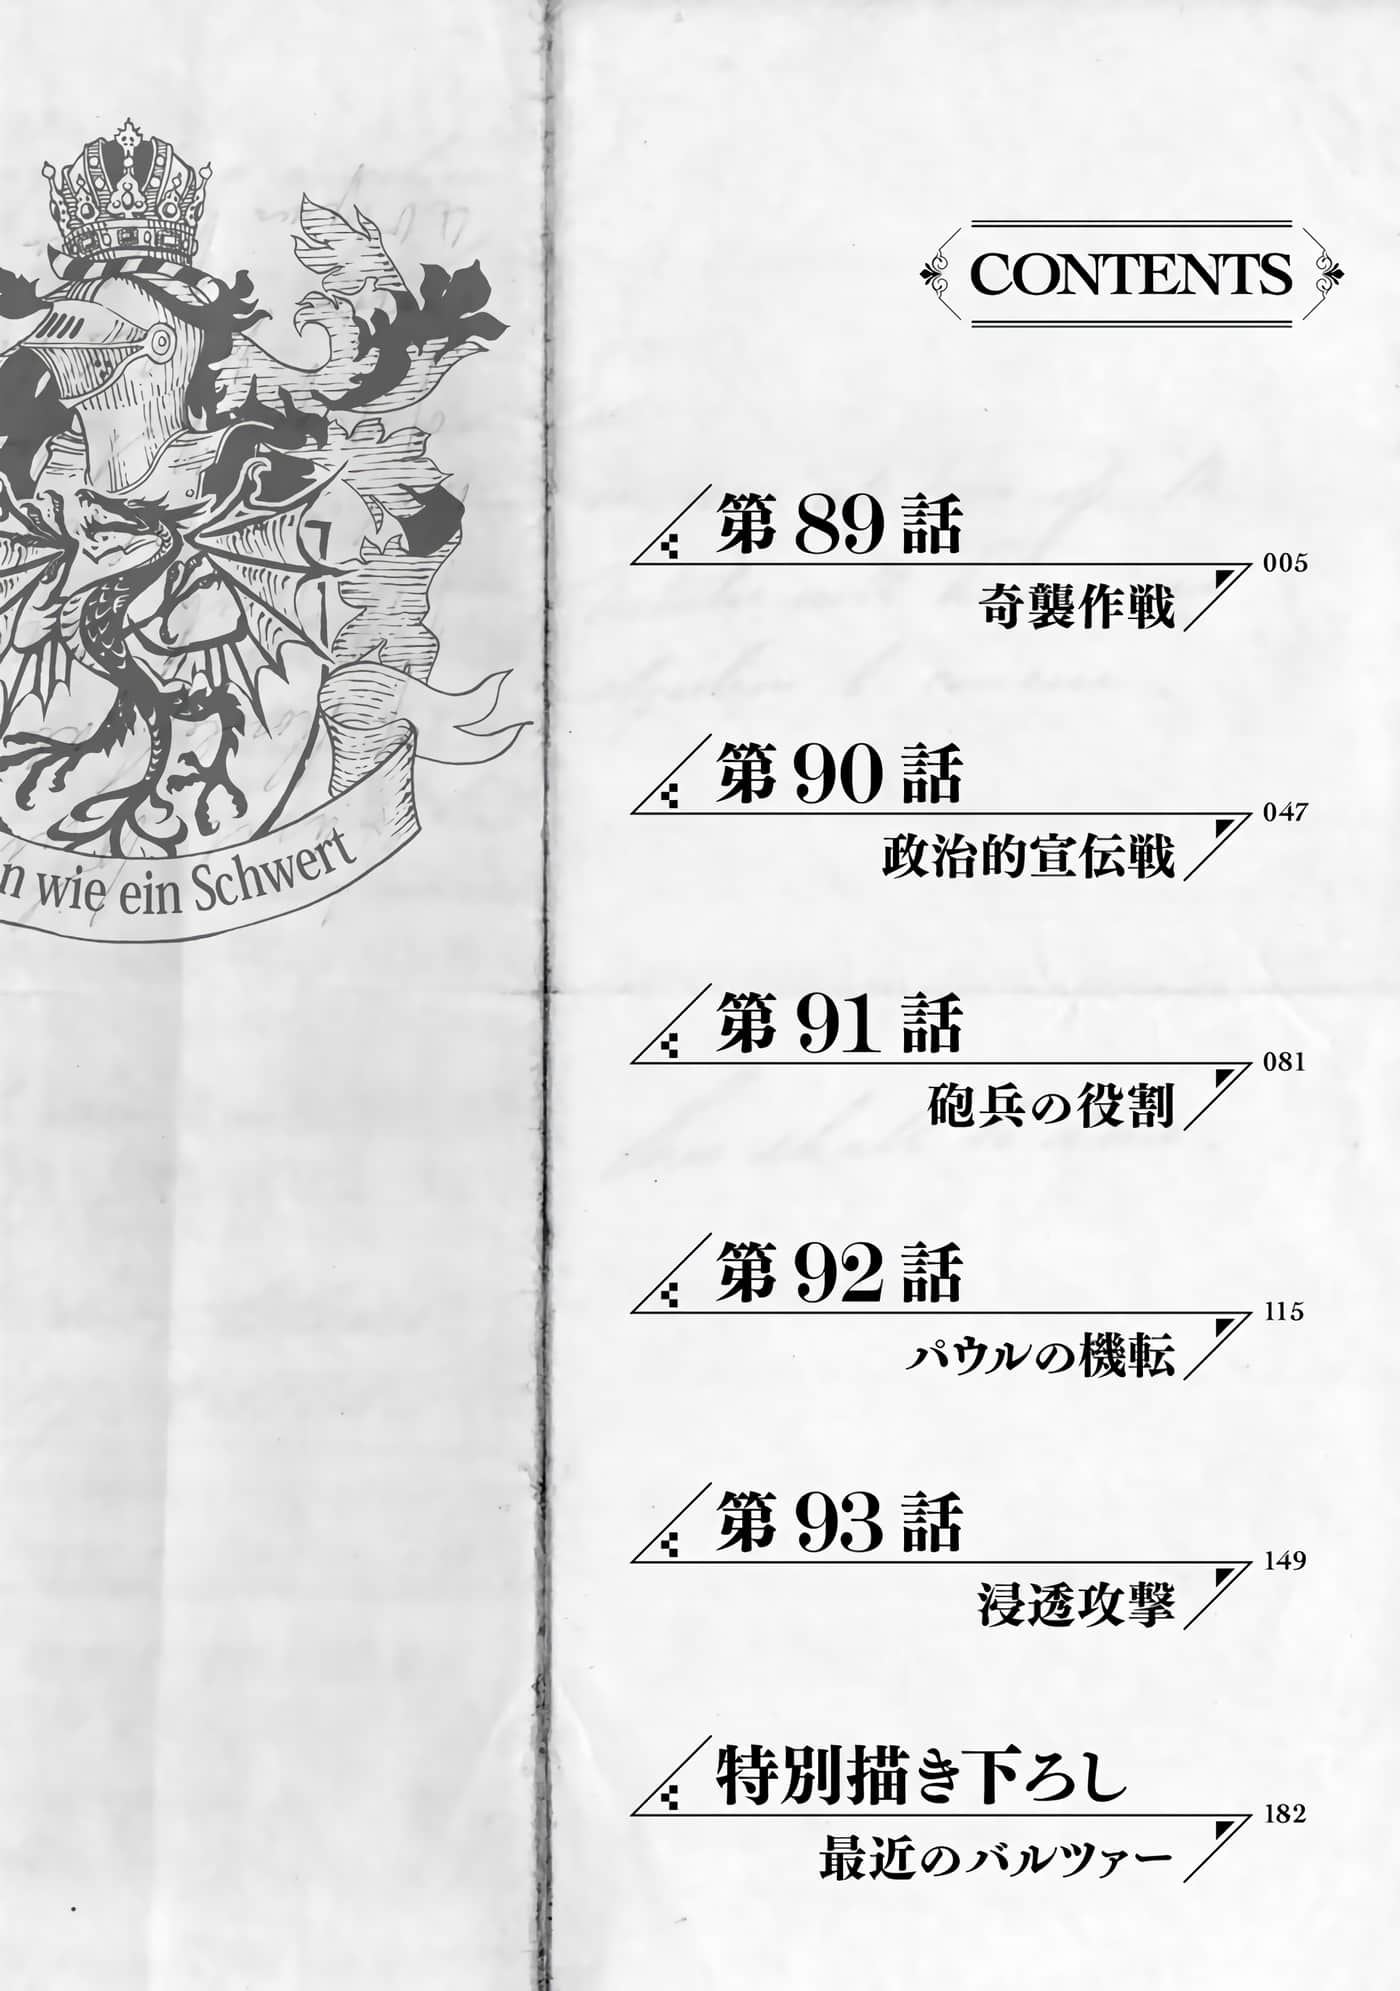 CONTENTS
第89話
005
奇襲作戦
第90話
047
政治的宣伝戦
第91話
081
砲兵の役割
第92話
115
パウルの機転
第93話
149
浸透攻撃
特別描き下ろし
182
最近のバルツァー
n wie ein Schwert